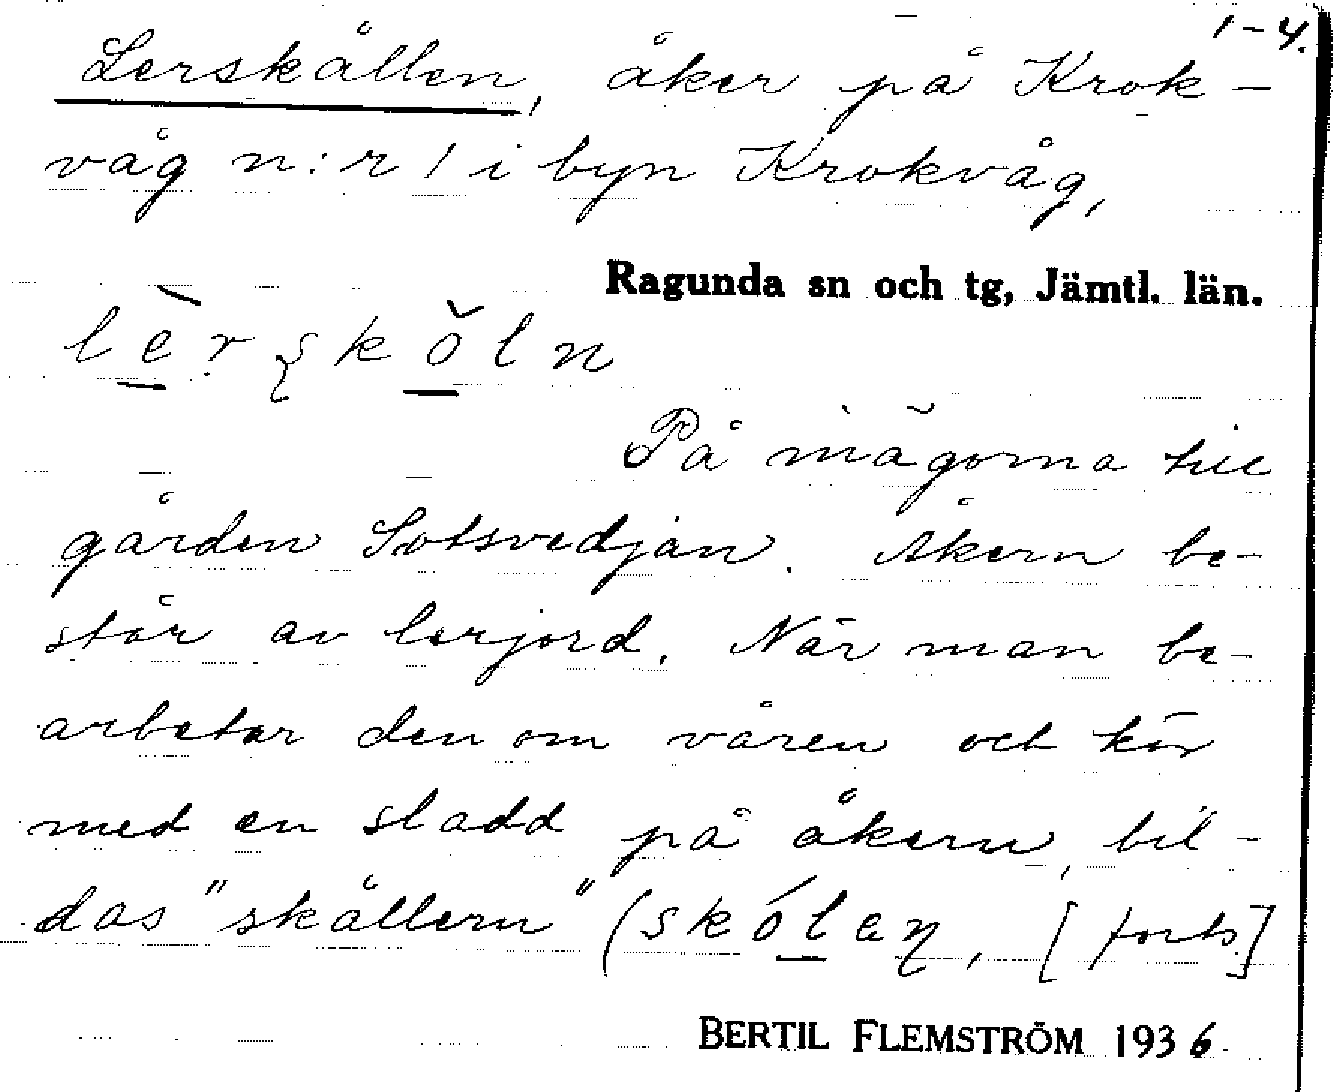 1-4.
Lerskållen, åker på Krok-
våg n:r 1 i byn Krokvåg,
Ragunda sn och tg, Jämtl. län.
lèrskŏln
På inägorna till
gården Sotsvedjan. Åkern be-
står av lerjord. När man be-
arbetar den om våren och kör
med en sladd på åkern, bil-
das "skållern" (skólen, [forts.]
BERTIL FLEMSTRÖM 1936